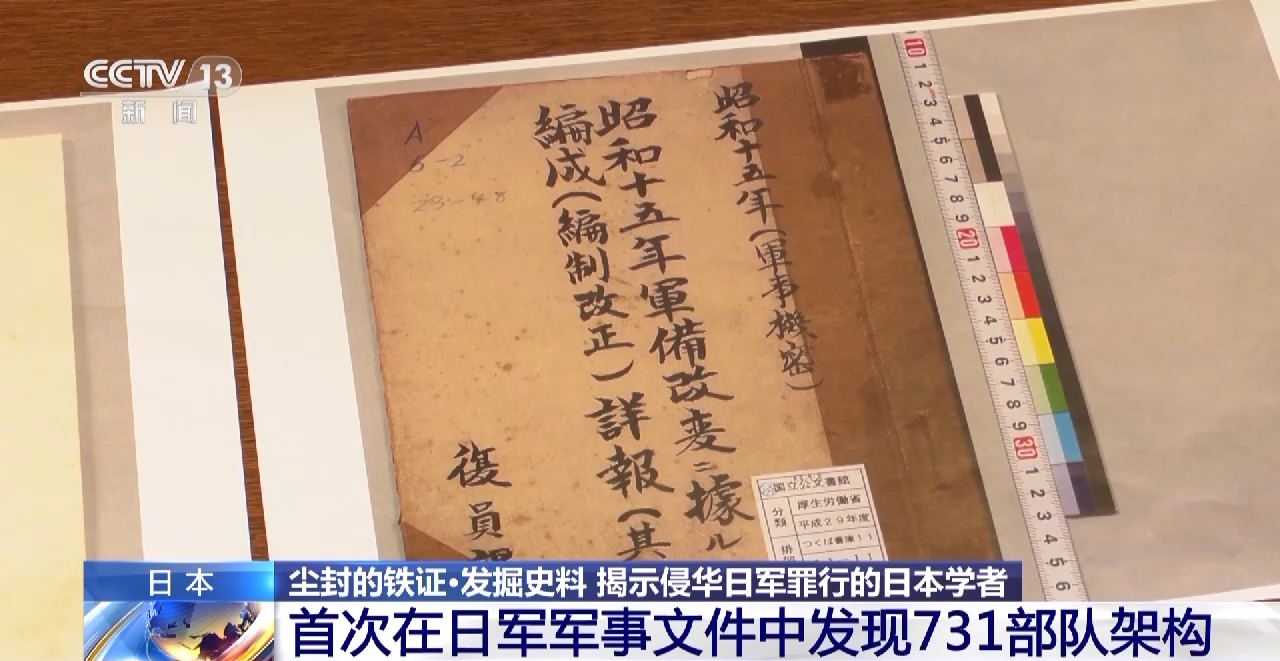 CCTV 13
新闻
昭和十五年（軍事機密）
昭和十五年軍備改変ニ據ル
編成（編制改正）詳報（其
復員課
A
5-2
23-48
国立公文書館
分類
厚生労働省
平成29年度
つくば書庫11
排架
10 1 2 3 4 5 6 7 8 9 20 1 2 3 4 5 6 7 8 9 30 1 2 3 4 5 6
日本
尘封的铁证·发掘史料 揭示侵华日军罪行的日本学者
首次在日军军事文件中发现731部队架构